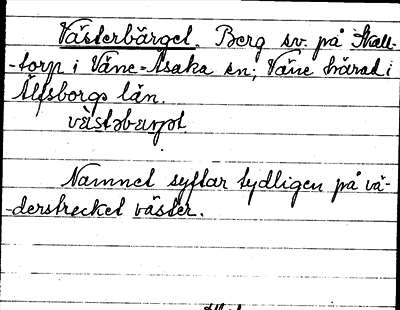 Västerbärget. Berg sv. på Skall-
-torp i Väne-Åsaka sn; Väne härad i
Älfsborgs län.
Namnet syftar tydligen på vä-
-derstrecket väster.